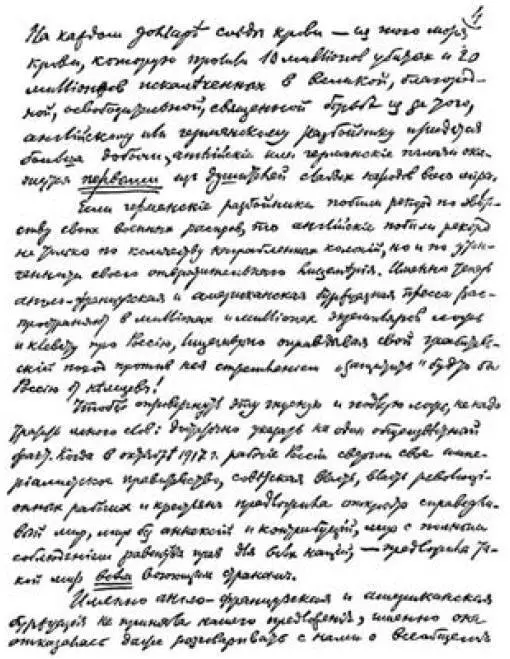 На каждом долларѣ следы крови — из того моря
крови, которую пролили 10 миллионов убитых и 20
миллионов искалѣченных в великой, благород-
ной, освободительной, священной борьбе из за того,
английскому или германскому разбойнику придется
больше добычи, английскіе или германскіе палачи ока-
жутся первыми из душителей слабых народов всего мира.
Если германскіе разбойники побили рекорд по звѣр-
ству своих военных расправ, то английскіе побили рекорд
не только по количеству награбленных колоний, но и по утон-
ченности своего отвратительного лицемѣрія. Именно теперь
англо-французская и американская буржуазная пресса рас-
пространяет в миллионах и миллионах экземпляров ложь
и клевету про Россію, лицемѣрно оправдывая свой грабитель-
скій поход против нея стремленіем "защитить" будто бы
Россію от нѣмцев!
Чтобы опровергнуть эту гнусную и подлую ложь, не надо
тратить много слов: достаточно указать на один общеизвѣстный
факт. Когда в октябрѣ 1917 г. рабочіе Россіи свергли свое импе-
ріалистское правительство, совѣтская власть, власть революці-
онных рабочих и крестьян предложила открыто справедли-
вый мир, мир без аннексій и контрибуцій, мир с полным
соблюденіем равенства прав для всех націй, — предложила та-
кой мир всем воюющим странам.
Именно англо-французская и американская
буржуазія не приняла нашего предложенія, именно она
отказалась даже разговаривать с нами о всеобщем